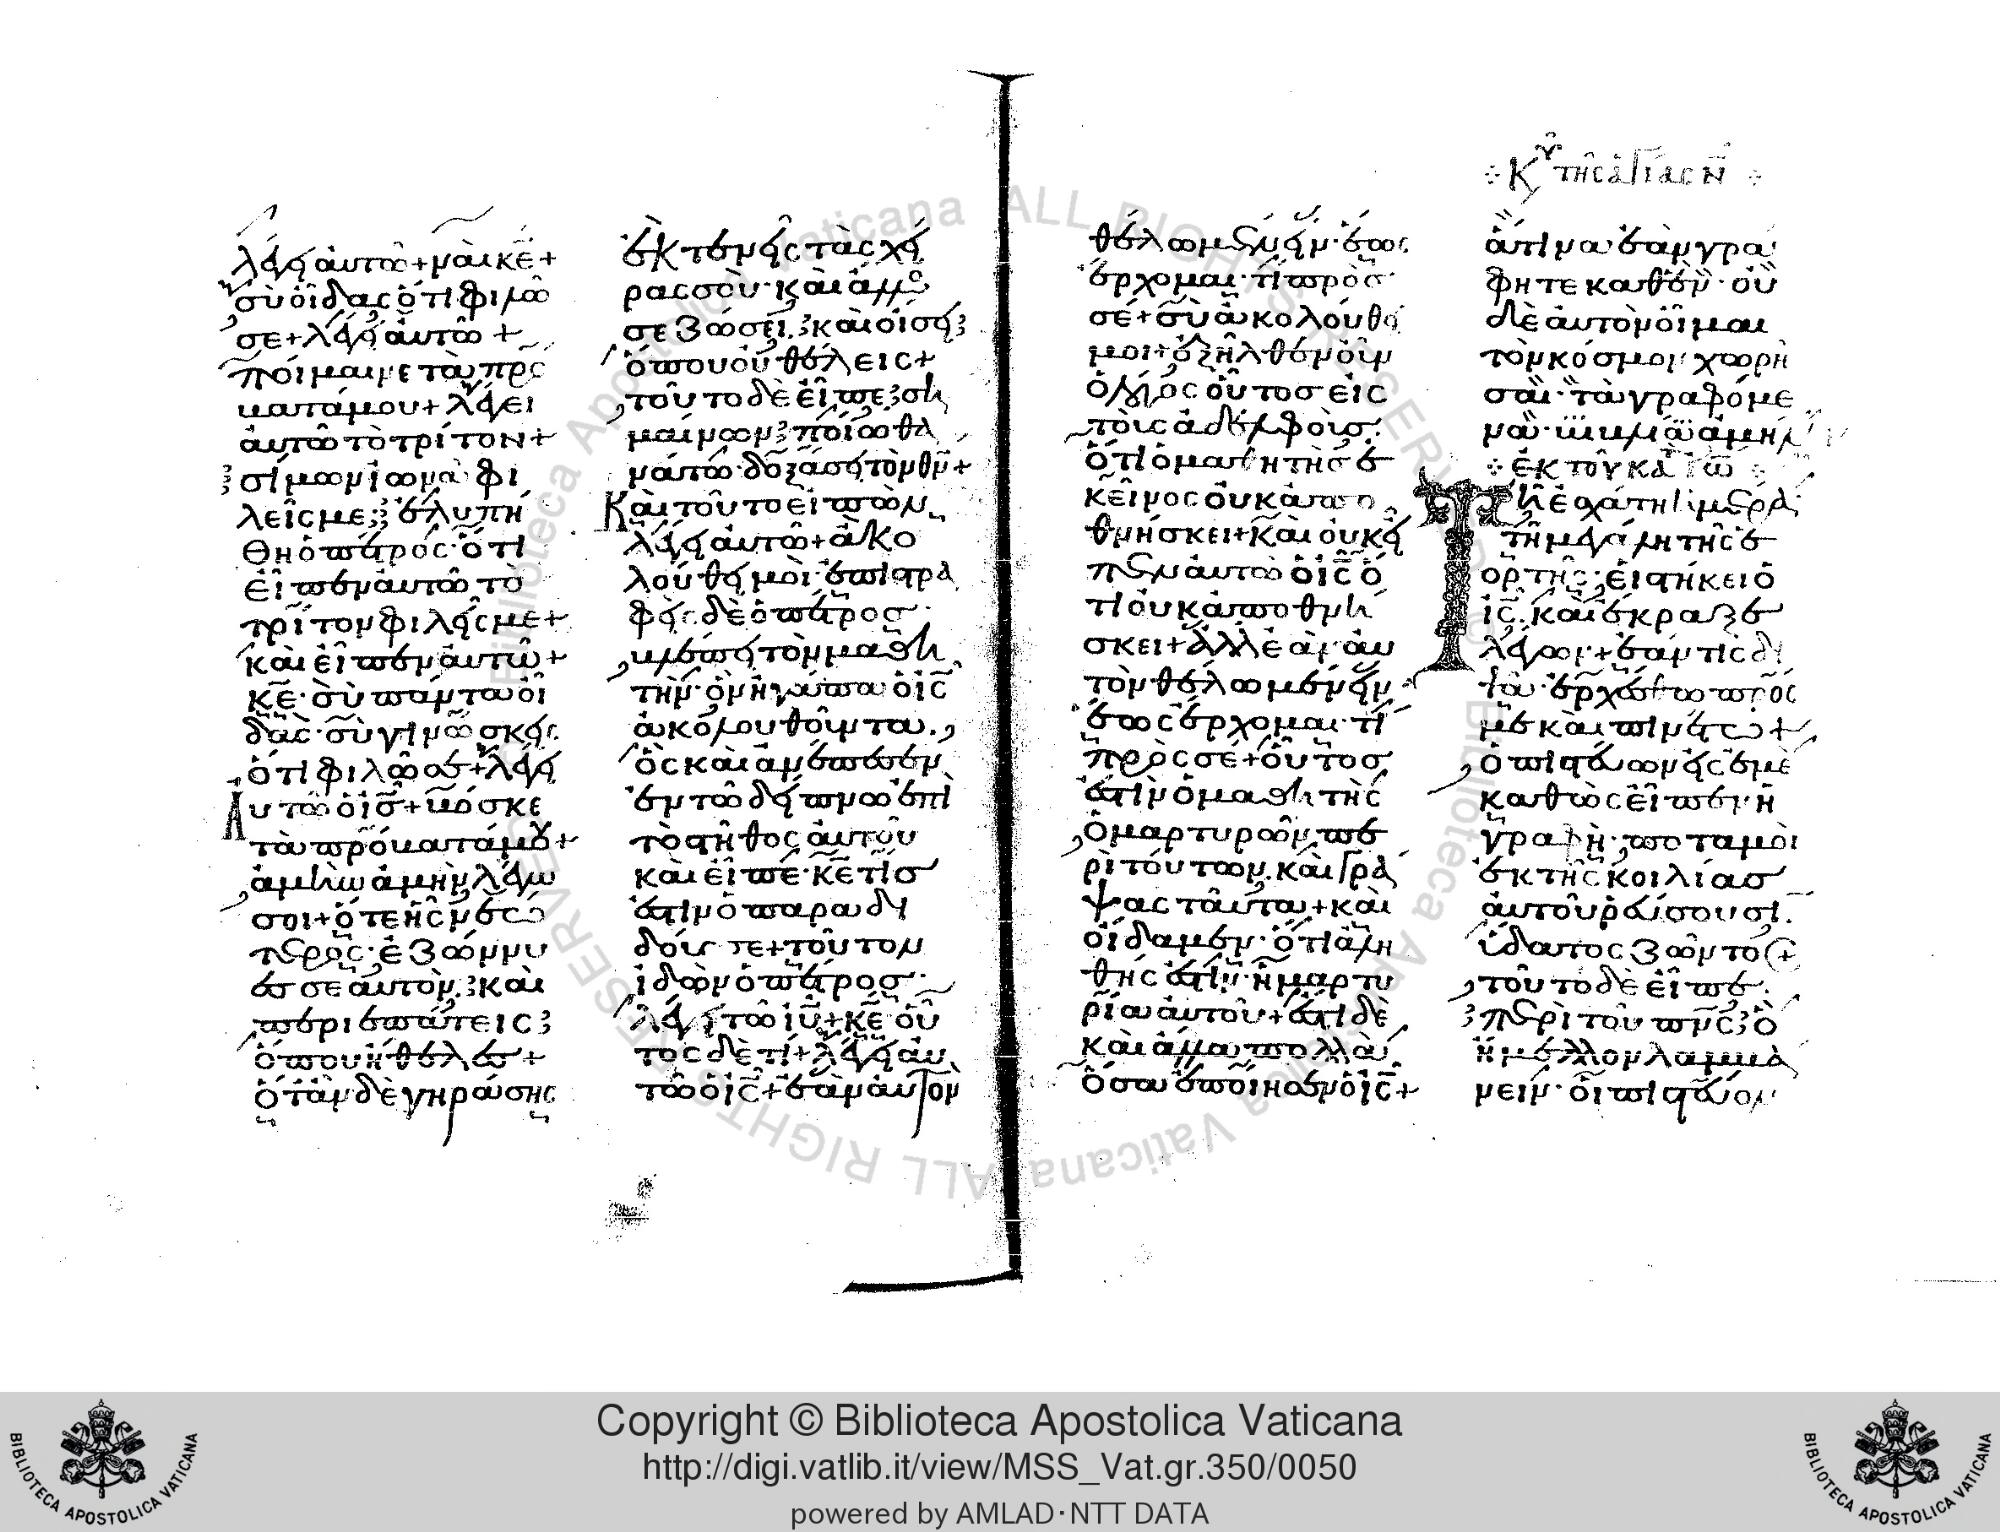 λέγει αὐτῶ + ναὶ κ̅ε̅ +
σὺ οἶδας ὅτι φιλῶ
σε + λέγει αὐτῶ +
ποίμαινε τὰ πρό
βατά μου + λέγει
αὐτῶ τὸ τρίτον +
σίμων ἰωνᾶ φι
λεῖς με· ἐλυπή
θη ὁ πέτρος· ὅτι
εἶπεν αὐτῶ τὸ
τρίτον φιλεῖς με +
καὶ εἶπεν αὐτῶ +
κ̅ε̅· σὺ πάντα οἶ
δας· σὺ γινώσκεις
ὅτι φιλῶ σε + λέγει
Αὐτῶ ὁ ι̅ς̅ + βόσκε
τὰ πρόβατά μου +
ἀμὴν ἀμὴν λέγω
σοι + ὅτε ἦς νεώ
τερος· ἐζώννυ
ες σεαυτὸν· καὶ
περιεπάτεις
ὅπου ἤθελες +
ὅταν δὲ γηράσης
ἐκτενεῖς τὰς χεῖ
ρας σου· καὶ ἄλλος
σε ζώσει· καὶ οἴσει
ὅπου οὐ θέλεις +
τοῦτο δὲ εἶπε· ση
μαίνων· ποίω θα
νάτω· δοξάσει τὸν θ̅ν̅ +
Καὶ τοῦτο εἰπὼν,
λέγει αὐτῶ + ἀκο
λούθει μοι· ἐπιστρα
φεὶς δὲ ὁ πέτρος·
βλέπει τὸν μαθη
τὴν· ὃν ἠγάπα ὁ ι̅ς̅
ἀκολουθοῦντα.
ὃς καὶ ἀνέπεσεν
ἐν τῶ δείπνω ἐπὶ
τὸ στῆθος αὐτοῦ
καὶ εἶπε· κ̅ε̅ τίς
ἐστιν ὁ παραδι
δούς σε + τοῦτον
ἰδὼν ὁ πέτρος·
λέγει τῶ ι̅υ̅ + κ̅ε̅ οὗ
τος δὲ τί + λέγει αὐ
τῶ ὁ ι̅ς̅ + ἐὰν αὐτὸν
θέλω μένειν· ἕως
ἔρχομαι· τί πρὸς
σέ + σὺ ἀκολούθει
μοι + ἐξῆλθεν οὖν
ὁ λόγος οὗτος εἰς
τοὺς ἀδελφοὺς.
ὅτι ὁ μαθητὴς ἐ
κεῖνος οὐκ ἀπο
θνήσκει + καὶ οὐκ εἶ
πεν αὐτῶ ὁ ι̅ς̅ ὅ
τι οὐκ ἀποθνή
σκει + ἀλλ' ἐὰν αὐ
τὸν θέλω μένειν·
ἕως ἔρχομαι· τί
πρὸς σέ + οὗτος
ἐστὶν ὁ μαθητὴς
ὁ μαρτυρῶν πε
ρὶ τούτων. καὶ γρά
ψας ταῦτα + καὶ
οἴδαμεν· ὅτι ἀλη
θής ἐστιν· ἡ μαρτυ
ρία αὐτοῦ + ἔστι δὲ
καὶ ἄλλα πολλὰ
ὅσα ἐποίησεν ὁ ι̅ς̅ +
Κυ τῆς ἁγίας Ν̅
ἅτινα ἐὰν γρά
φηται καθ' ἓν· οὐ
δὲ αὐτὸν οἶμαι
τὸν κόσμον χωρῆ
σαι· τὰ γραφόμε
να· βιβλία ἀμήν
ἐκ τοῦ κατὰ Ἰω
Τῆ ἐσχάτη ἡμέρα·
τῆ μεγάλη τῆς ἑ
ορτῆς· εἱστήκει ὁ
ι̅ς̅. καὶ ἔκραξε
λέγων + ἐάν τις δι
ψᾶ· ἐρχέσθω πρός
με καὶ πινέτω +
ὁ πιστεύων εἰς ἐμὲ
καθὼς εἶπεν ἡ
γραφὴ· ποταμοὶ
ἐκ τῆς κοιλίας
αὐτοῦ ῥεύσουσι.
ὕδατος ζῶντος +
τοῦτο δὲ εἶπε.
περὶ τοῦ π̅ν̅ς̅ οὗ
ἤμελλον λαμβά
νειν· οἱ πιστεύον
Copyright © Biblioteca Apostolica Vaticana
http://digi.vatlib.it/view/MSS_Vat.gr.350/0050
powered by AMLAD·NTT DATA
BIBLIOTECA APOSTOLICA VATICANA
BIBLIOTECA APOSTOLICA VATICANA